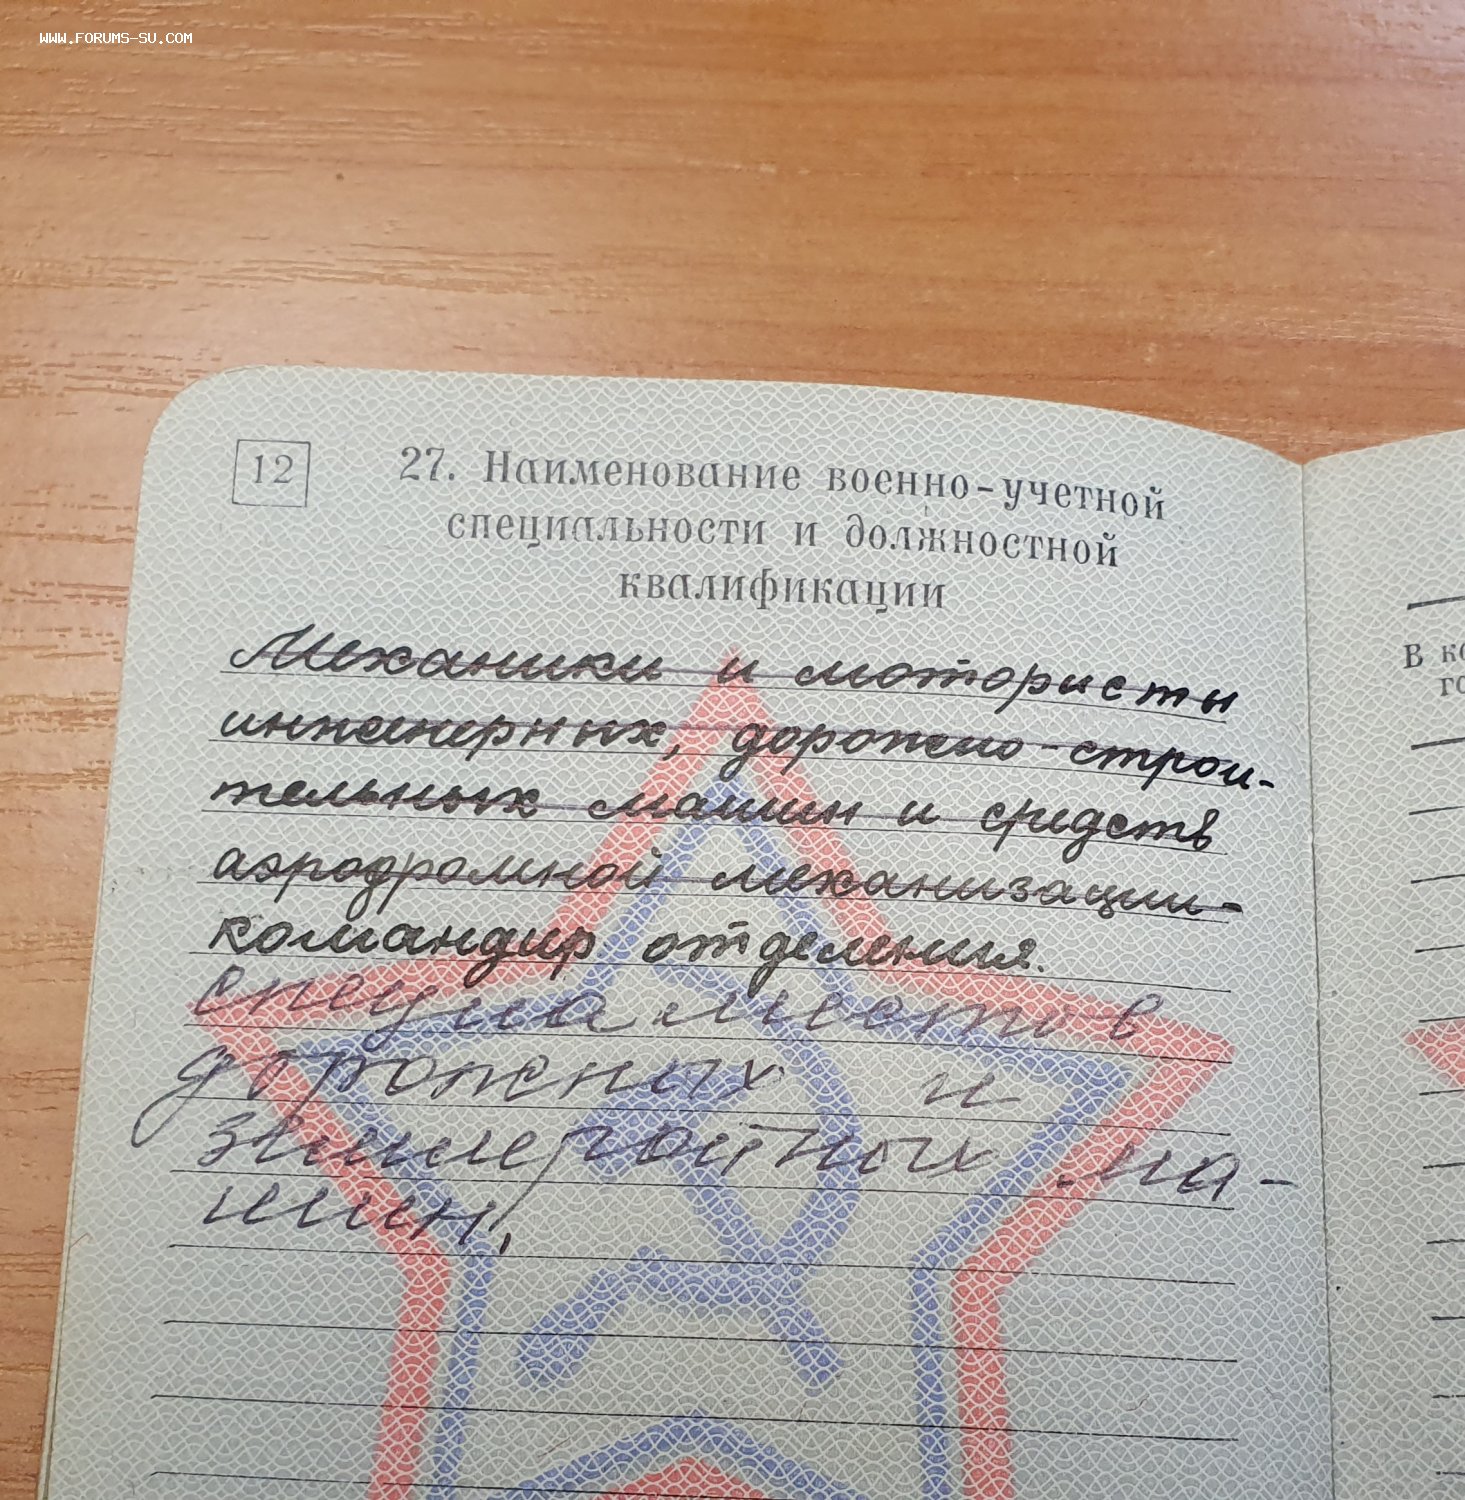 WWW.FORUMS-SU.COM
12
27. Наименование военно-учетной
специальности и должностной
квалификации
Механики и мотористы
инженерных, дорожно-строи-
тельных машин и средств
аэродромной механизации-
командир отделения.
дорожных и
ма-
шин.
В ко
го